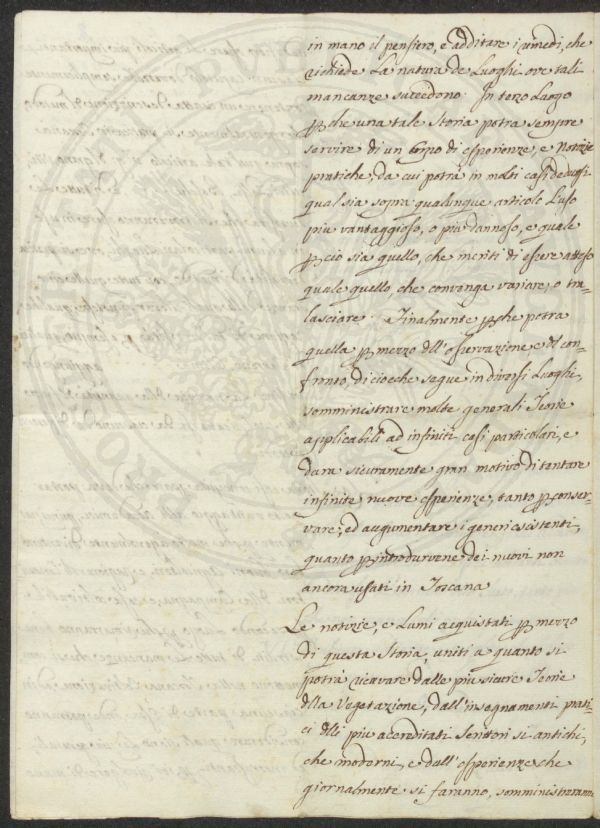 in mano il pensiero, e additare i rimedi, che
richiede La natura de Luoghi ove tali
mancanze succedono. In terzo Luogo
pche una tale Storia potrà sempre
servire di un di esperienze, e Notizie
pratiche, da cui potrà in molti casi dedursi
qual sia sopra qualunque articolo L'uso
più vantaggioso, o più dannoso, e quale
pciò sia quello, che meriti di essere atteso
quale quello, che convenga variare, o tra-
lasciare. Finalmente pche potrà
quella p mezzo dll'osservazione, e dl con-
fronto, di ciòche segue in diversi Luoghi,
somministrare molte generali Teorie
applicabili ad infiniti casi particolari, e
darà sicuramente gran motivo di tentare
infinite nuove esperienze, tanto p conser-
vare, ed augumentare i generi esistenti,
quanto p introdurvene dei nuovi non
ancora usati in Toscana
Le notizie, e Lumi acquistati p mezzo
di questa Storia, uniti a quanto si
potrà ricavare dalle più sicure Teorie
dlla Vegetazione, dall'insegnamenti prati-
ci dlli più accreditati Scrittori si antichi,
che moderni, e dall'esperienze che
giornalmente si faranno, somministreranno